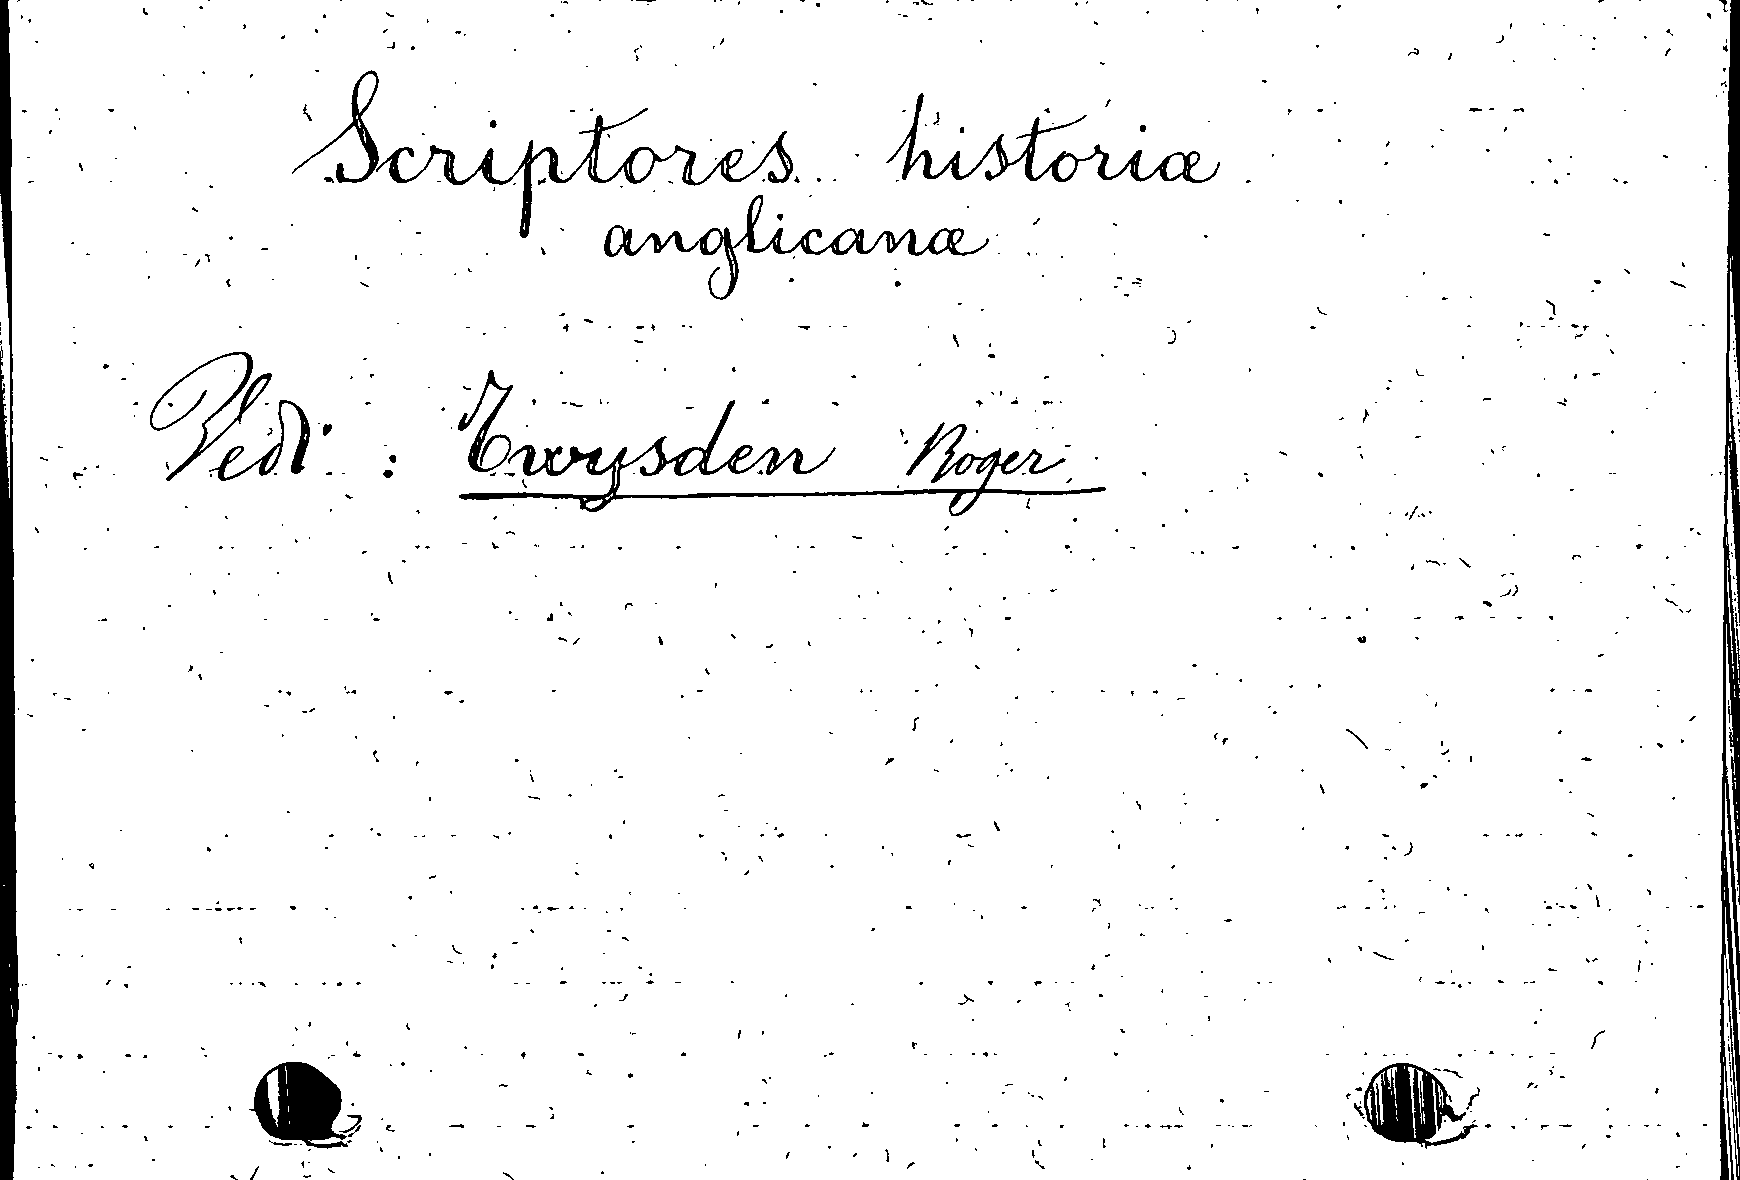 Scriptores historiæ
anglicanæ
Vedi : Twysden Roger